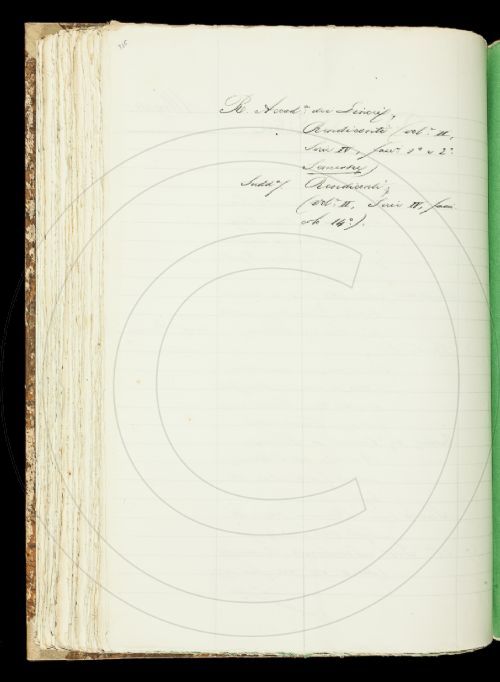 315
R. Accad.ª dei Lincei,
Rendiconti (vol.º II,
Serie IV, fasc.º 1º e 2º
Semestre)
Sudd.ª/ Rendiconti,
(vol.º II, Serie IV, fasci
olo 14º).
C